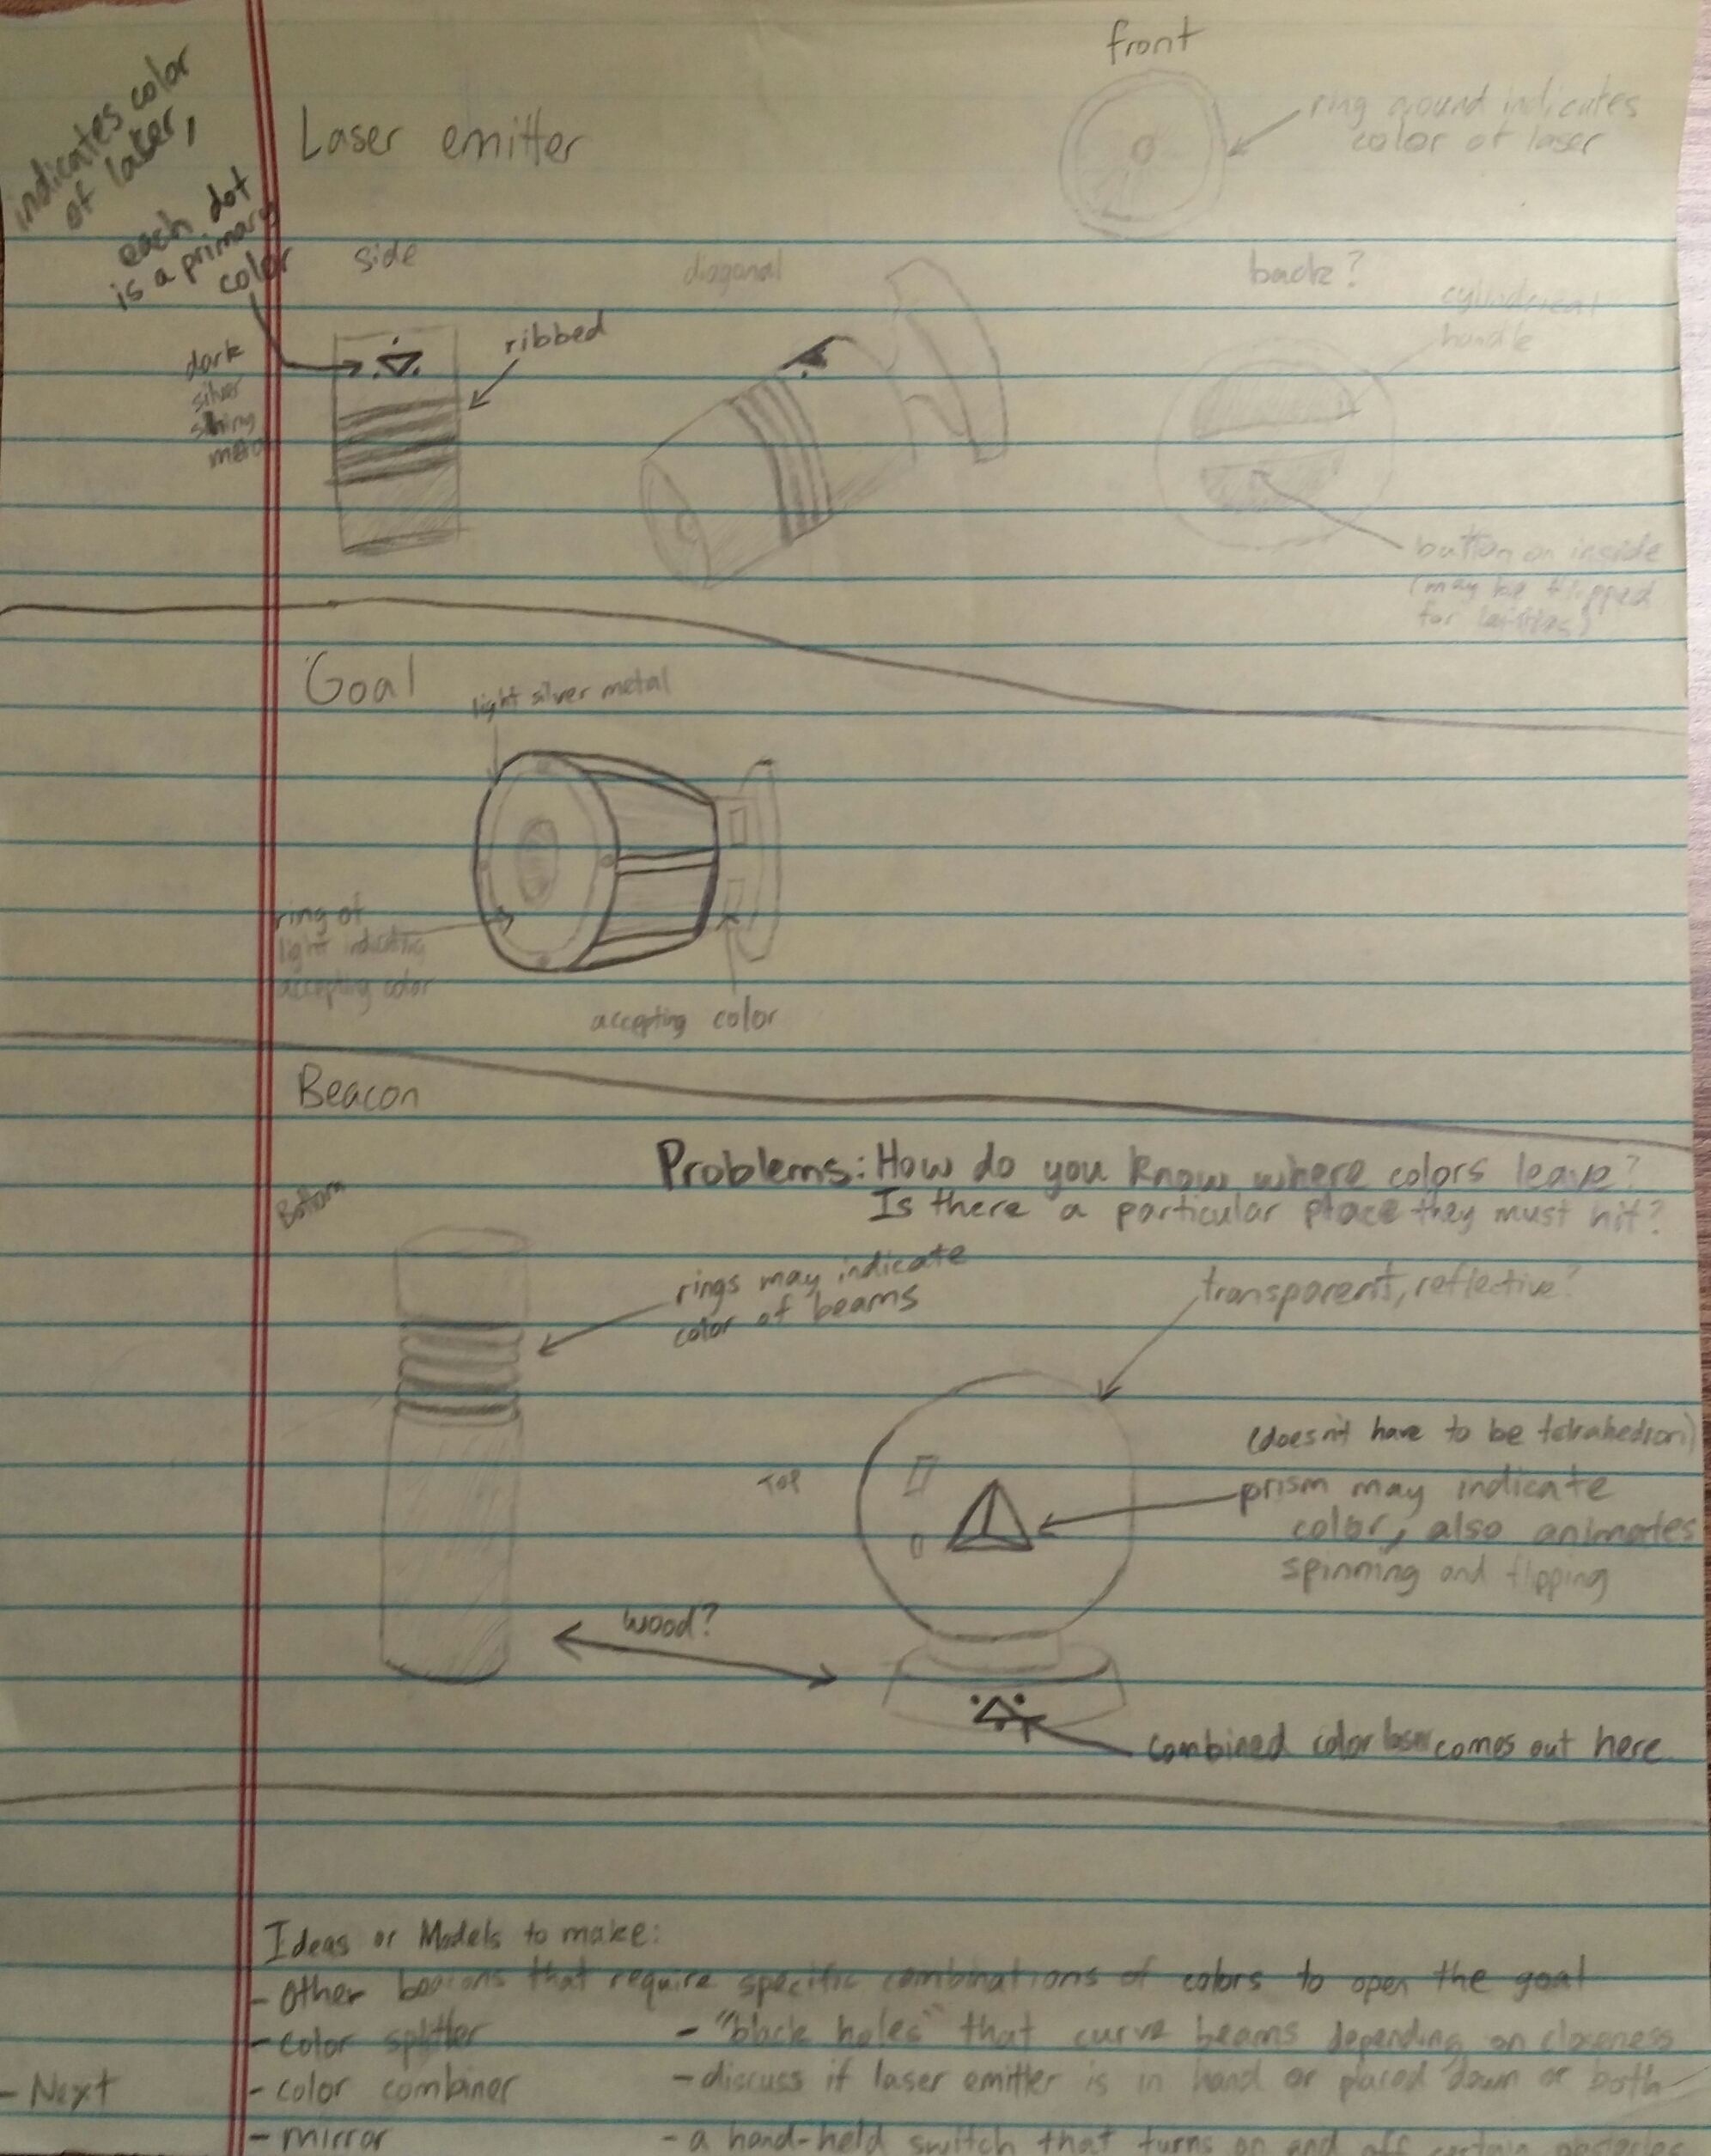 front
ring around indicates
color of laser
Laser emitter
indicates color
of laser,
each dot
is a primary
color
side
diagonal
back?
cylindrical
handle
ribbed
dark
silver
shiny
metal
button on inside
(may be flipped
for lefties)
Goal
light silver metal
ring of
light indicating
accepting color
accepting color
Beacon
Problems: How do you know where colors leave?
Is there a particular place they must hit?
Bottom
rings may indicate
color of beams
transparent, reflective?
TOP
(doesn't have to be tetrahedron)
prism may indicate
color, also animates
spinning and flipping
wood?
combined color laser comes out here
Ideas or Models to make:
- Other beacons that require specific combinations of colors to open the goal
- color splitter
- "black holes" that curve beams depending on closeness
- Next
- color combiner
- discuss if laser emitter is in hand or placed down or both
- mirror
- a hand-held switch that turns on and off certain obstacles